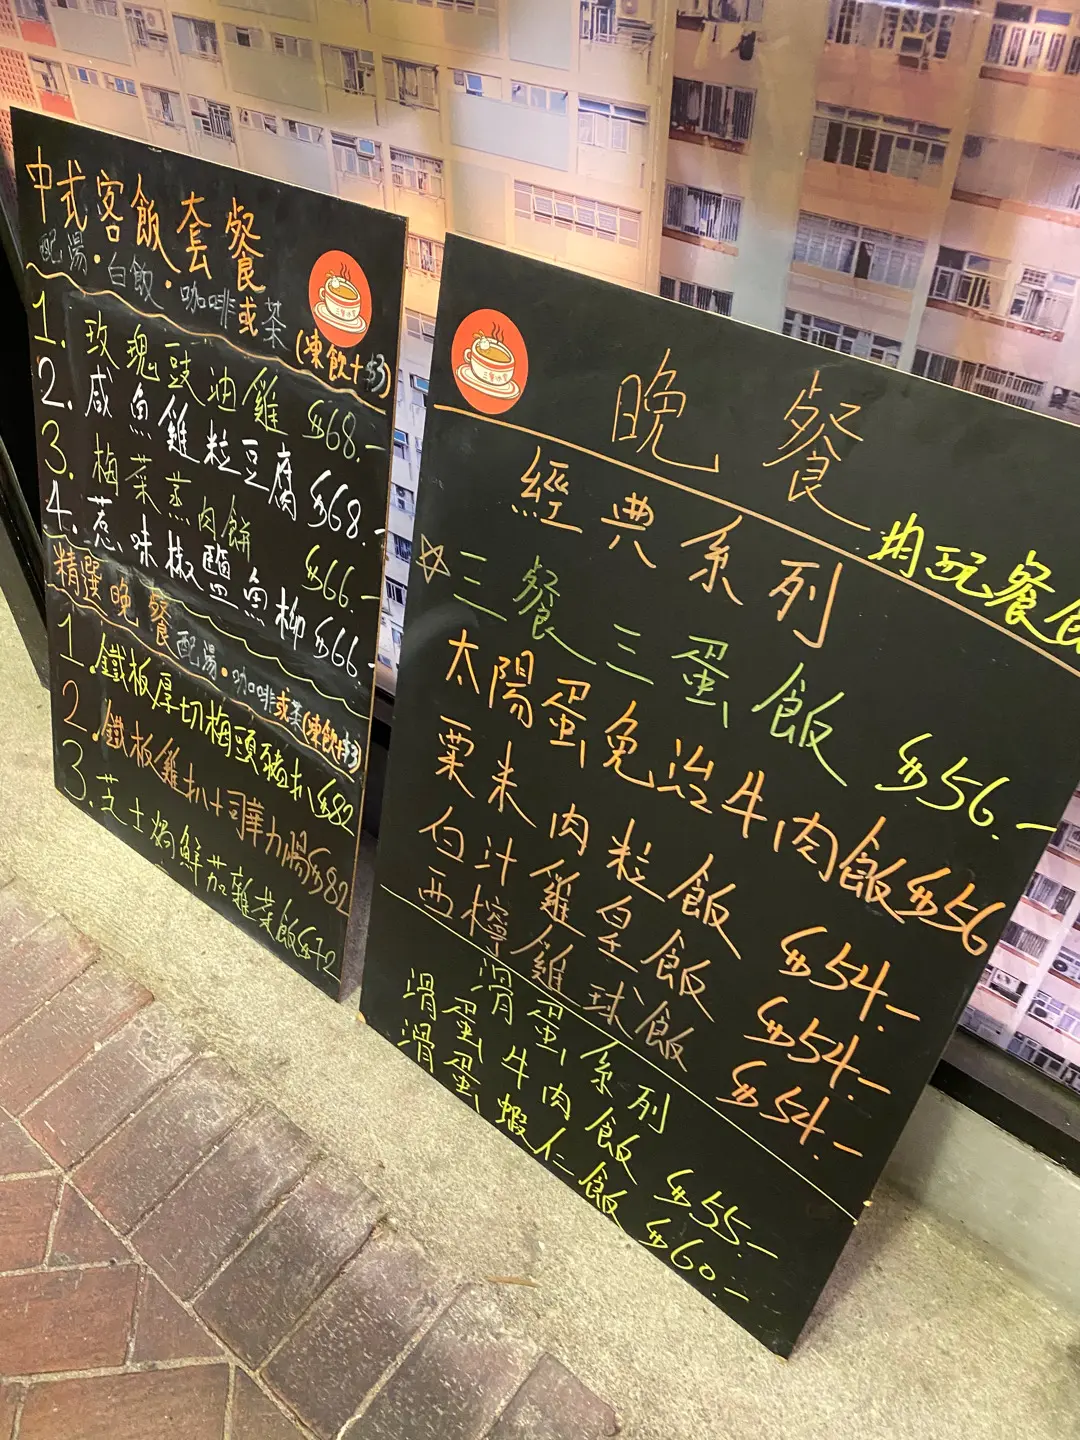 中式客飯套餐
配湯·白飯·咖啡或茶(凍飲+$3)
1. 玫瑰豉油雞 $68.-
2. 咸魚雞粒豆腐 $68.-
3. 梅菜蒸肉餅 $66.-
4. 惹味椒鹽魚柳 $66.-
精選晚餐 配湯·咖啡或茶(凍飲+$3)
1. 鐵板厚切梅頭豬扒 $82
2. 鐵板雞扒+司華力腸 $82
3. 芝士焗鮮茄雜菜飯 $72
晚餐
經典系列
三餐三蛋飯 $56.-
太陽蛋免治牛肉飯 $56
粟米肉粒飯 $54.-
白汁雞皇飯 $54.-
西檸雞球飯 $54.-
滑蛋系列
滑蛋牛肉飯 $55.-
滑蛋蝦仁飯 $60.-